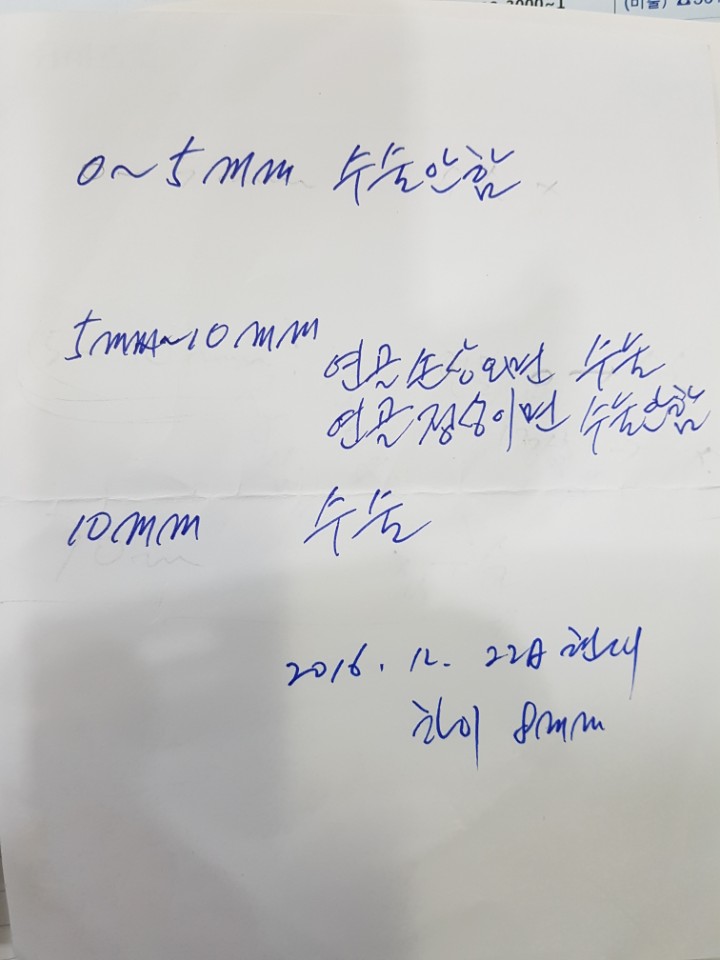 0~5mm 수술안함
5mm~10mm 연골손상되면 수술
연골정상이면 수술안함
10mm 수술
2016. 12. 22일 현재
차이 8mm